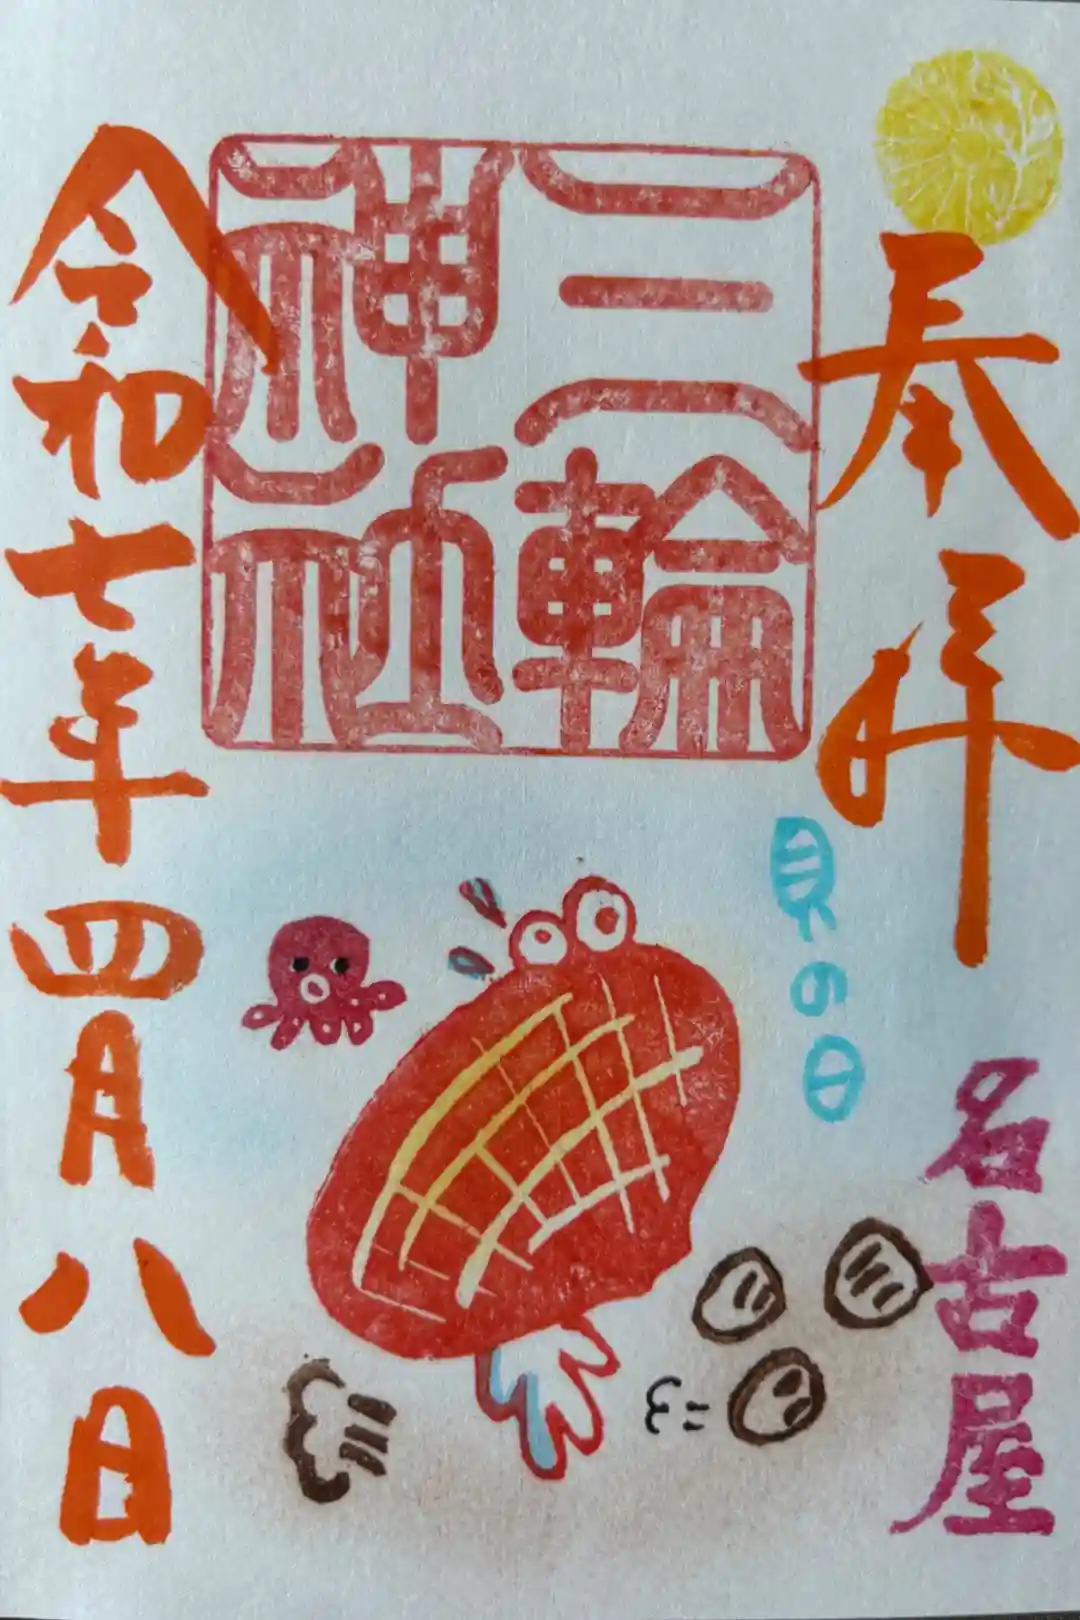 奉拝
名古屋
貝の日
三輪
神社
令和七年四月八日